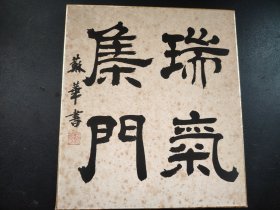 瑞氣
集門
蘇華書